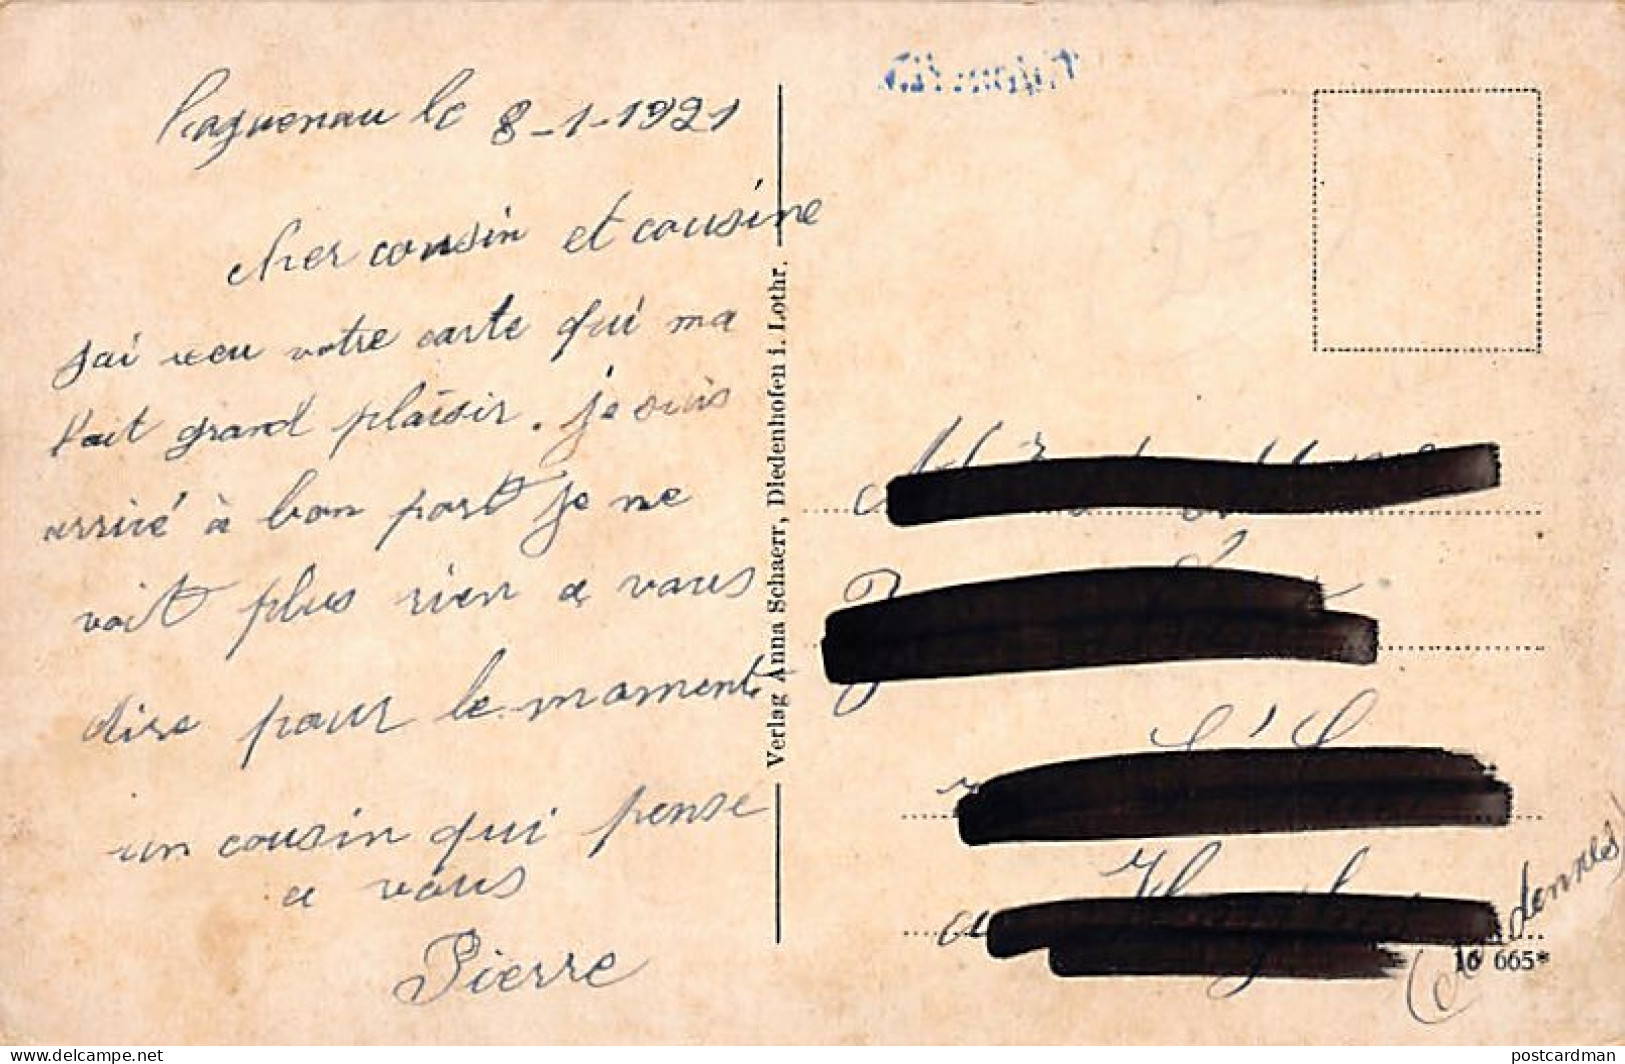 haguenau le 8-1-1921
cher cousin et cousine
jai reeu votre carte qui ma
fait grand plaisir. je suis
arrivé à bon port je ne
voit plus rien a vous
dire pour le moment
un cousin qui pense
a vous
Pierre
Verlag Anna Schaerr, Diedenhofen i. Lothr.
(Ardennes)
16 665*
delcampe.net
postcardman